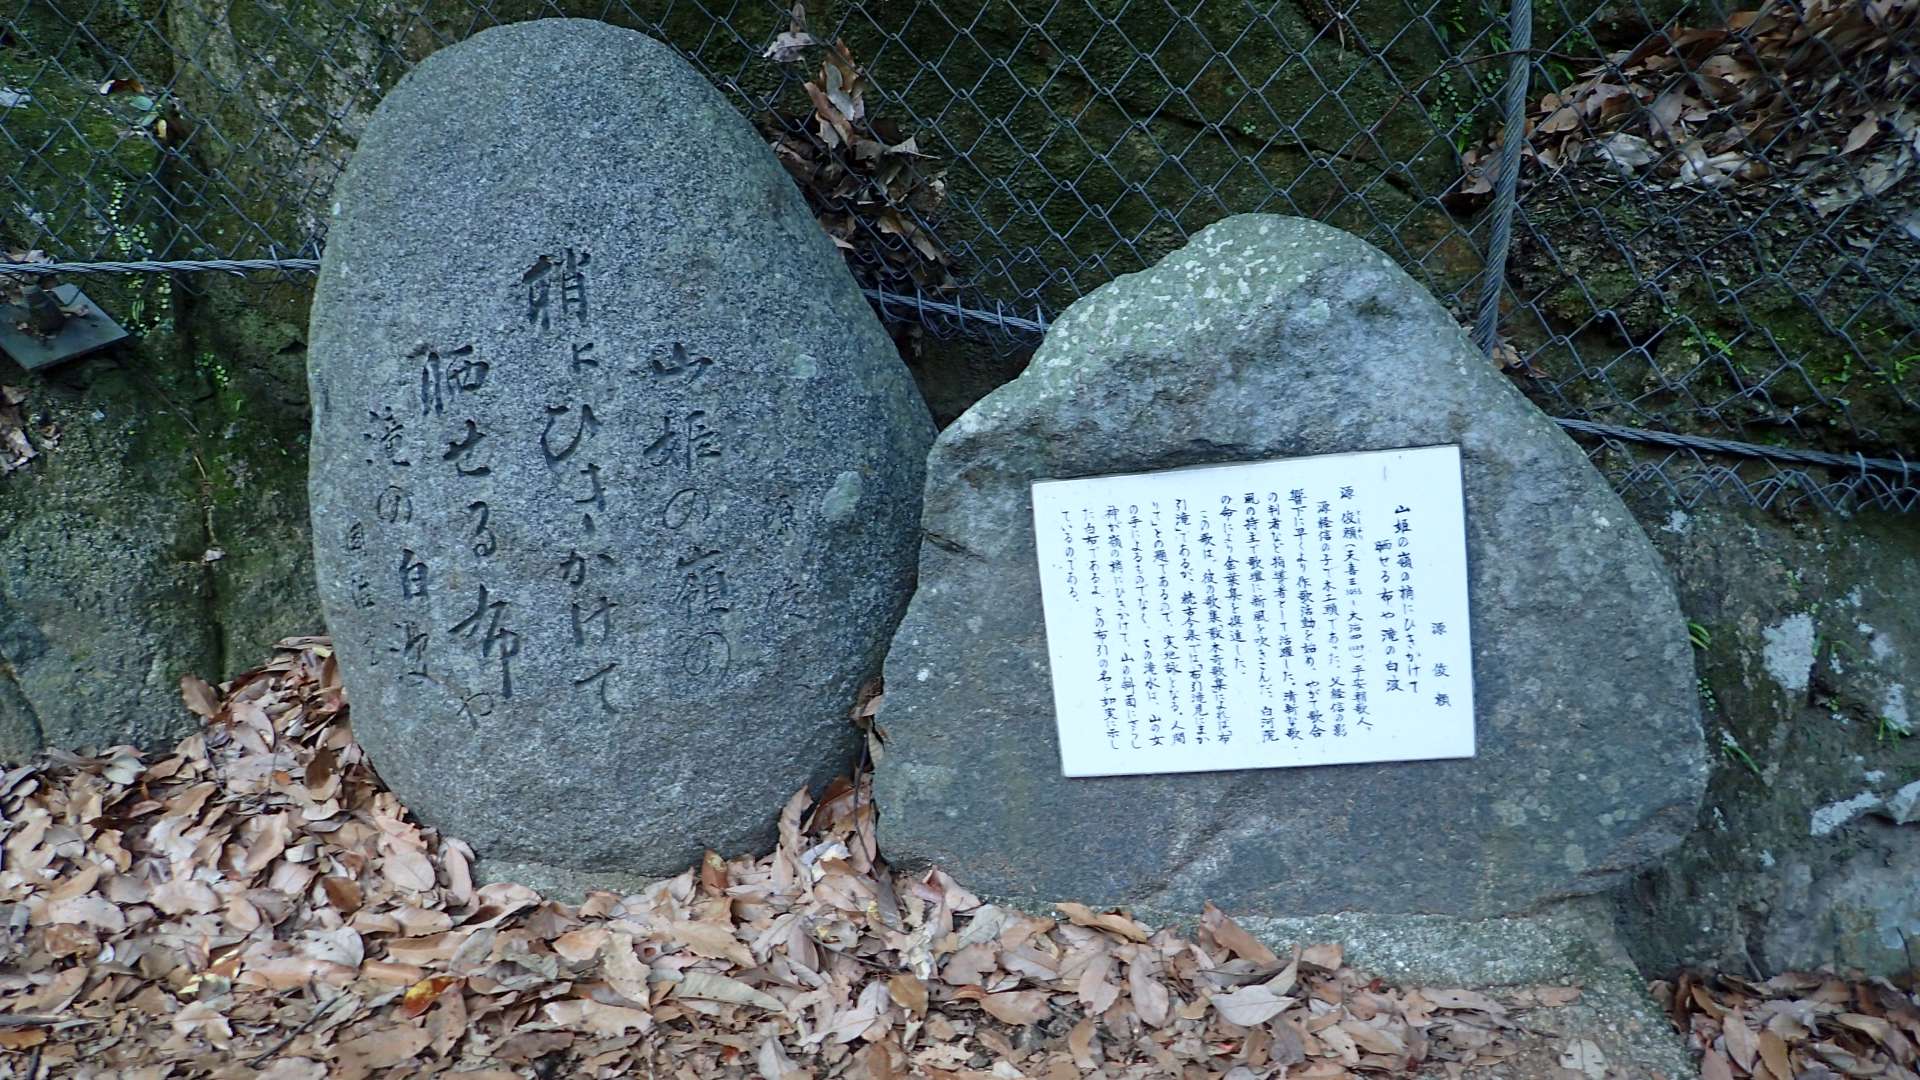 源俊頼
山姫の嶺の
梢にひさかけて
晒せる布や
滝の白波
源 俊頼
山姫の嶺の梢にひさかけて
晒せる布や滝の白波
源 俊頼(天喜三1055~大治四)、平安朝歌人、
源経信の子で木工頭であった。父経信の影
響下に早くより作歌活動を始め、やがて歌合
の判者など指導者として活躍した。清新な歌
風の持主で歌壇に新風を吹きこんだ。白河院
の命により金葉集を撰進した。
この歌は、彼の歌集、散木奇歌集によれば「布
引滝」であるが、続古今集では「布引滝見にまか
りて」との題であるので、実地詠となる。人間
の手によるものでなく、この滝水は、山の女
神が嶺の梢にひきかけて、山の斜面にさらし
た白布であるよ との布引の名を如実に示し
ているのである。